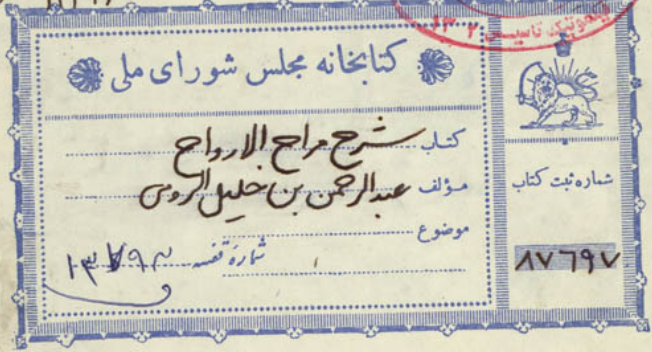 تأسیس ۱۳۰۲
کتابخانه مجلس شورای ملی
کتاب شرح مراح الارواح
مؤلف عبدالرحمن بن خلیل الرومی
موضوع
شماره قفسه
شماره ثبت کتاب
۸۷۶۹۷